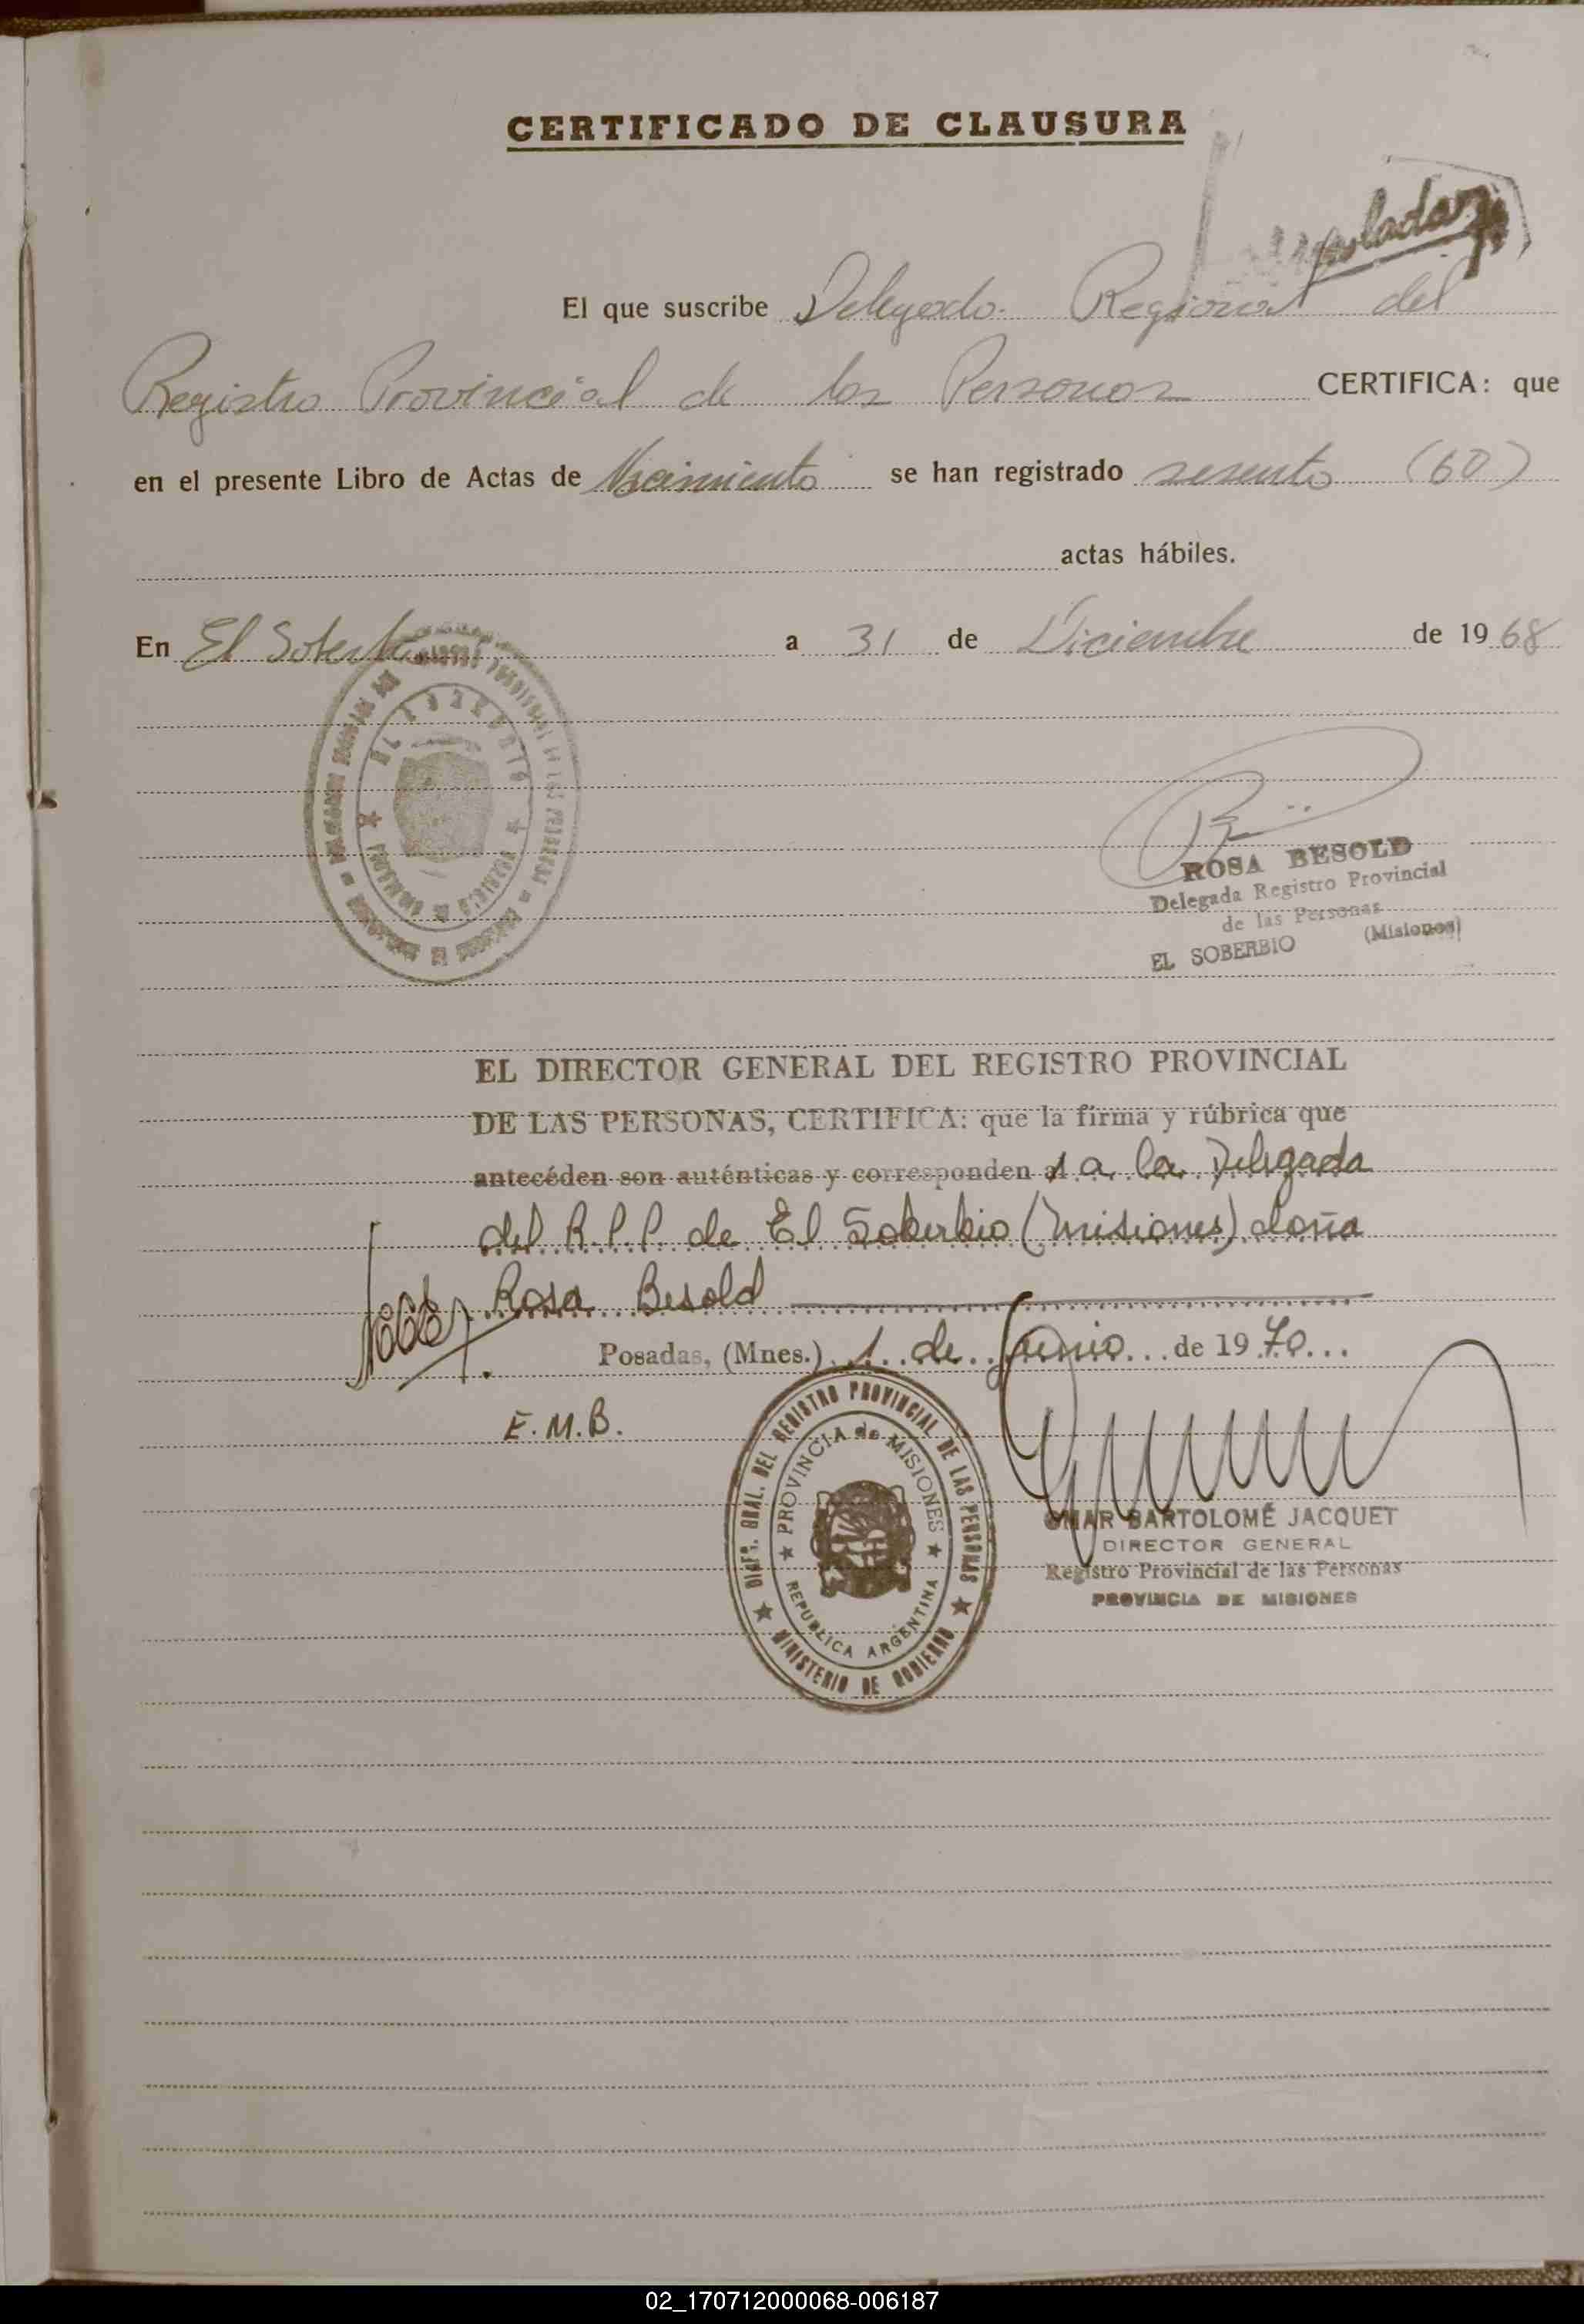 CERTIFICADO DE CLAUSURA
El que suscribe Delegado Regional del
Registro Provincial de las Personas CERTIFICA: que
en el presente Libro de Actas de Nacimiento se han registrado sesenta (60)
actas hábiles.
En El Soberbio a 31 de Diciembre de 1968
EL SOBERBIO
ROSA BESOLD
Delegada Registro Provincial
de las Personas
EL SOBERBIO (Misiones)
EL DIRECTOR GENERAL DEL REGISTRO PROVINCIAL
DE LAS PERSONAS, CERTIFICA: que la firma y rúbrica que
antecéden son auténticas y corresponden al a la Delegada
del R.P.P. de El Soberbio (Misiones) doña
Rosa Besold
Posadas, (Mnes.) 1 de Junio de 1970
E.M.B.
GRAL. DEL REGISTRO PROVINCIAL DE LAS PERSONAS
PROVINCIA de MISIONES
REPUBLICA ARGENTINA
MINISTERIO DE GOBIERNO
OMAR BARTOLOMÉ JACQUET
DIRECTOR GENERAL
Registro Provincial de las Personas
PROVINCIA DE MISIONES
02_170712000068-006187